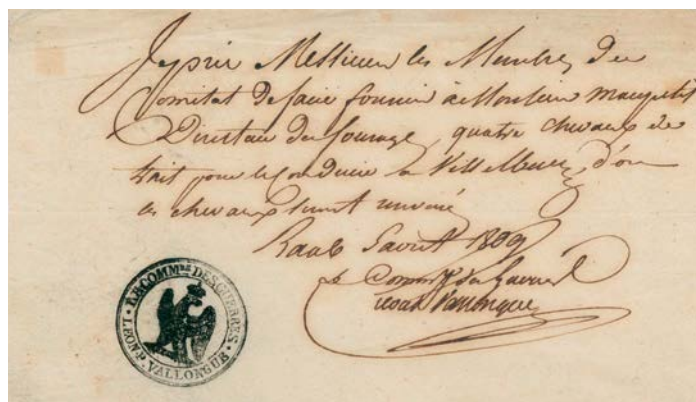 Je prie Messieurs les Membres du
Comitat de faire fournir à Monsieur
Directeur des fourages, quatre chevaux de
trait pour le conduire a d'ou
les chevaux seront renvoiés
Raab 1809
Le Commre des Guerres
Vallongue
LE COMMRE DES GUERRES.
LÉON P. VALLONGUE